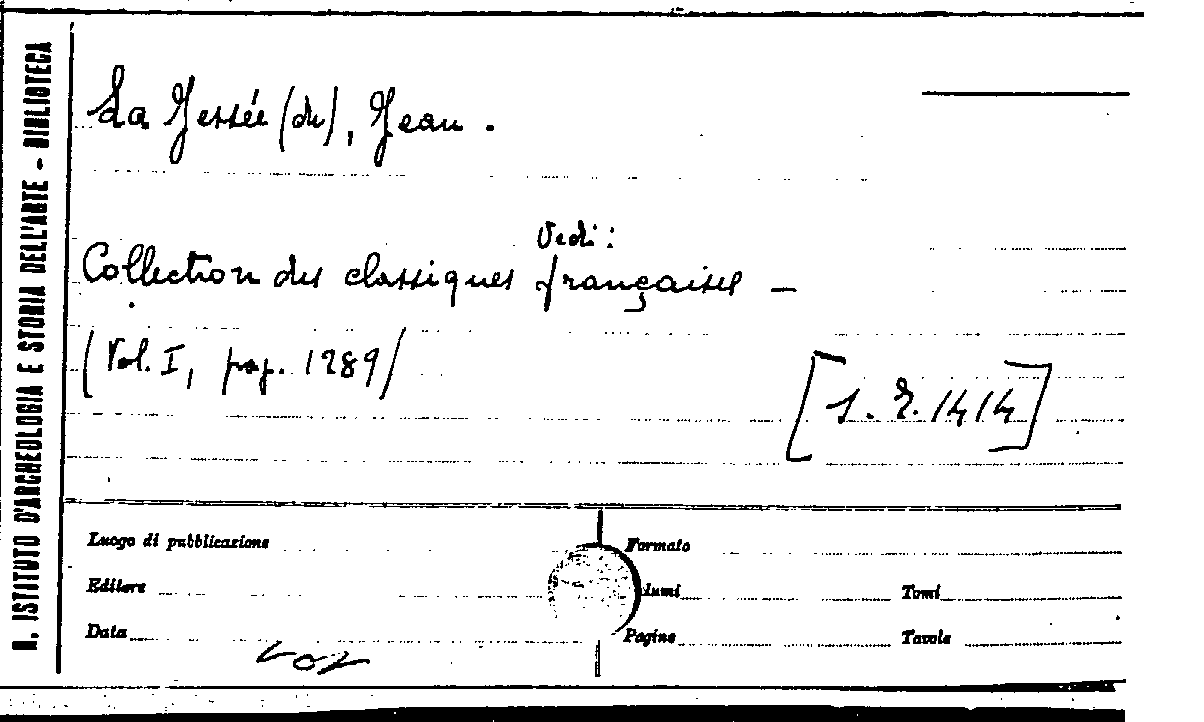 R. ISTITUTO D'ARCHEOLOGIA E STORIA DELL'ARTE - BIBLIOTECA
La Jessée (de), Jean.
Vedi:
Collection des classiques françaises —
(Vol. I, pag. 1289)
[S. R. 1414]
Luogo di pubblicazione
Formato
Editore
lumi
Tomi
Data
Pagine
Tavole